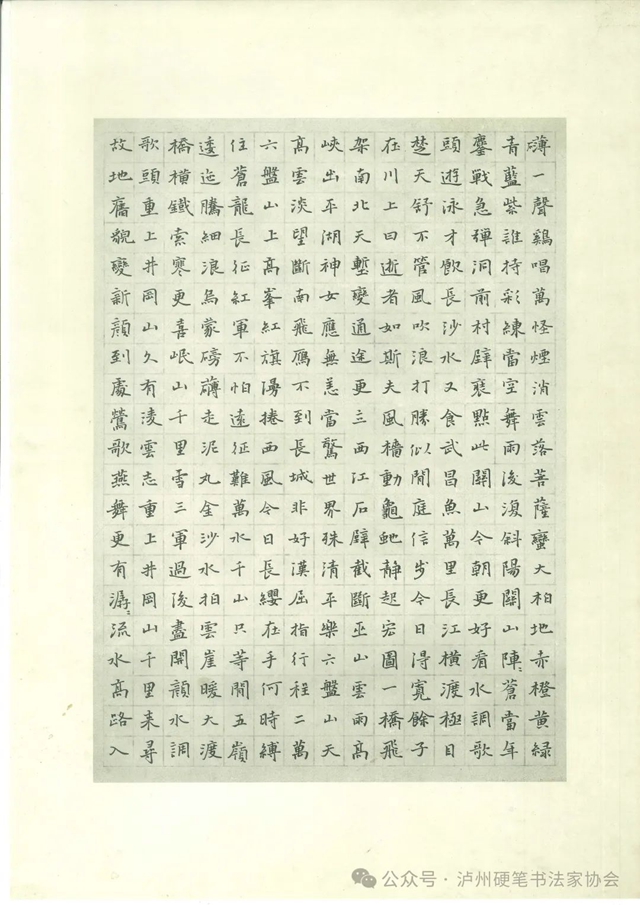 礴一聲鷄唱萬怪煙消雲落菩薩蠻大柏地赤橙黄緑
青藍紫誰持彩練當空舞雨後復斜陽關山陣〻蒼當年
鏖戰急彈洞前村壁裝點此關山今朝更好看水調歌
頭游泳才飲長沙水又食武昌魚萬里長江橫渡極目
楚天舒不管風吹浪打勝似閒庭信步今日得寬餘子
在川上曰逝者如斯夫風檣動龜虵靜起宏圖一橋飛
架南北天塹變通途更立西江石壁截斷巫山雲雨高
峽出平湖神女應無恙當驚世界殊清平樂六盤山天
高雲淡望斷南飛雁不到長城非好漢屈指行程二萬
六盤山上高峯紅旗漫捲西風今日長纓在手何時縛
住蒼龍長征紅軍不怕遠征難萬水千山只等閒五嶺
逶迤騰細浪烏蒙磅礴走泥丸金沙水拍雲崖暖大渡
橋橫鐵索寒更喜岷山千里雪三軍過後盡開顏水調
歌頭重上井岡山久有凌雲志重上井岡山千里來尋
故地舊貌變新顏到處鶯歌燕舞更有潺〻流水高路入
公众号 · 泸州硬笔书法家协会